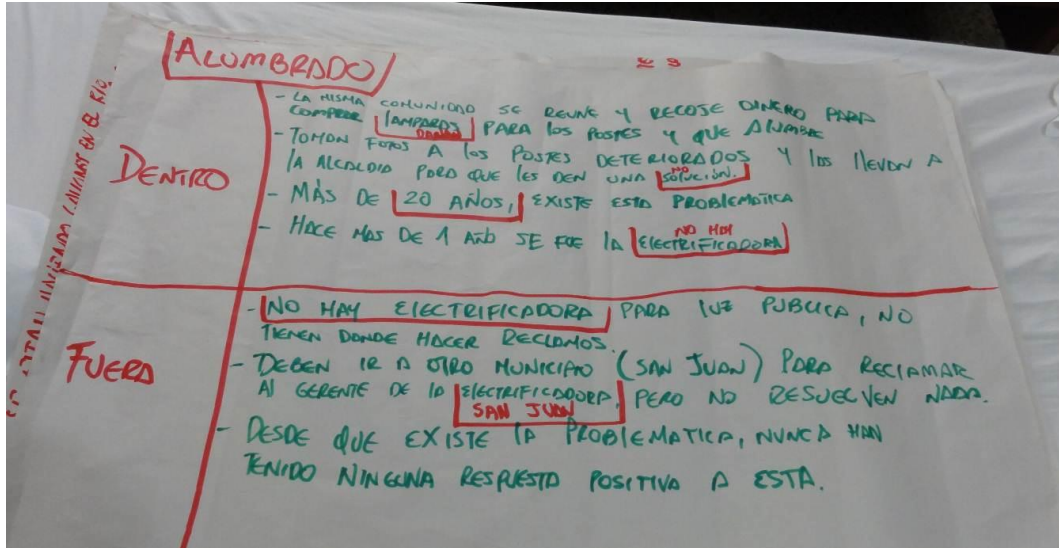 ALUMBRADO
DENTRO
- LA MISMA COMUNIDAD SE REUNE Y RECOJE DINERO PARA
COMPRAR LAMPARAS PARA los POSTES Y QUE ALUMBRE
- TOMAN FOTOS A los POSTES DETERIORADOS Y los llEVAN A
lA ALCALDIA PARA QUE lES DEN UNA SOlUCIÓN.
NO
- MÁS DE 20 AÑOS, EXISTE ESTA PROBLEMATICA
- HACE MAS DE 1 AÑO SE FUE lA ElECTRIFICADORA
NO HAY
FUERA
- NO HAY ElECTRIFICADORA PARA lUZ PUBLICA, NO
TIENEN DONDE HACER RECLAMOS.
- DEBEN IR A OTRO MUNICIPIO (SAN JUAN) PARA RECLAMAR
Al GERENTE DE lA ElECTRIFICADORA, PERO NO RESUELVEN NADA.
SAN JUAN
- DESDE QUE EXISTE lA PROBlEMATICA, NUNCA HAN
TENIDO NINGUNA RESPUESTA POSITIVA A ESTA.
EN EL RIO.